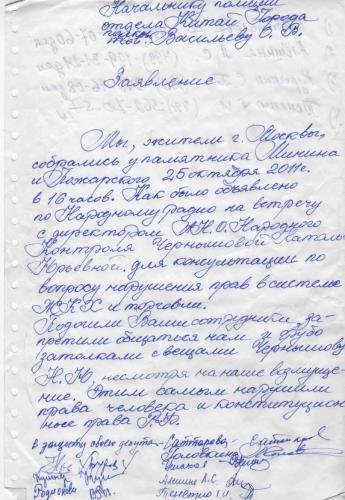 Начальнику полиции
отдела Китай Города
тов. Васильеву О. В.
Заявление
Мы, жители г. Москвы,
собрались у памятника Минина
и Пожарского 25 октября 2011г.
в 16 часов. Как было объявлено
по Народному радио на встречу
с директором А.Н.О. Народного
Контроля Чернышовой Наталь
Юрьевной. для консультации по
вопросу нарушения прав в системе
ЖКХ и торговли.
Подошли Ваши сотрудники, за-
претили общаться нам и грубо
затолкали с вещами Чернышову
Н.Ю, несмотря на наше возмуще-
ние. Этим самым нарушили
права человека и конституцион
ные права РФ.
В защиту своего Саттарова
Головкина
Ушаков
Родионова
Анишин А.С
Пенетно